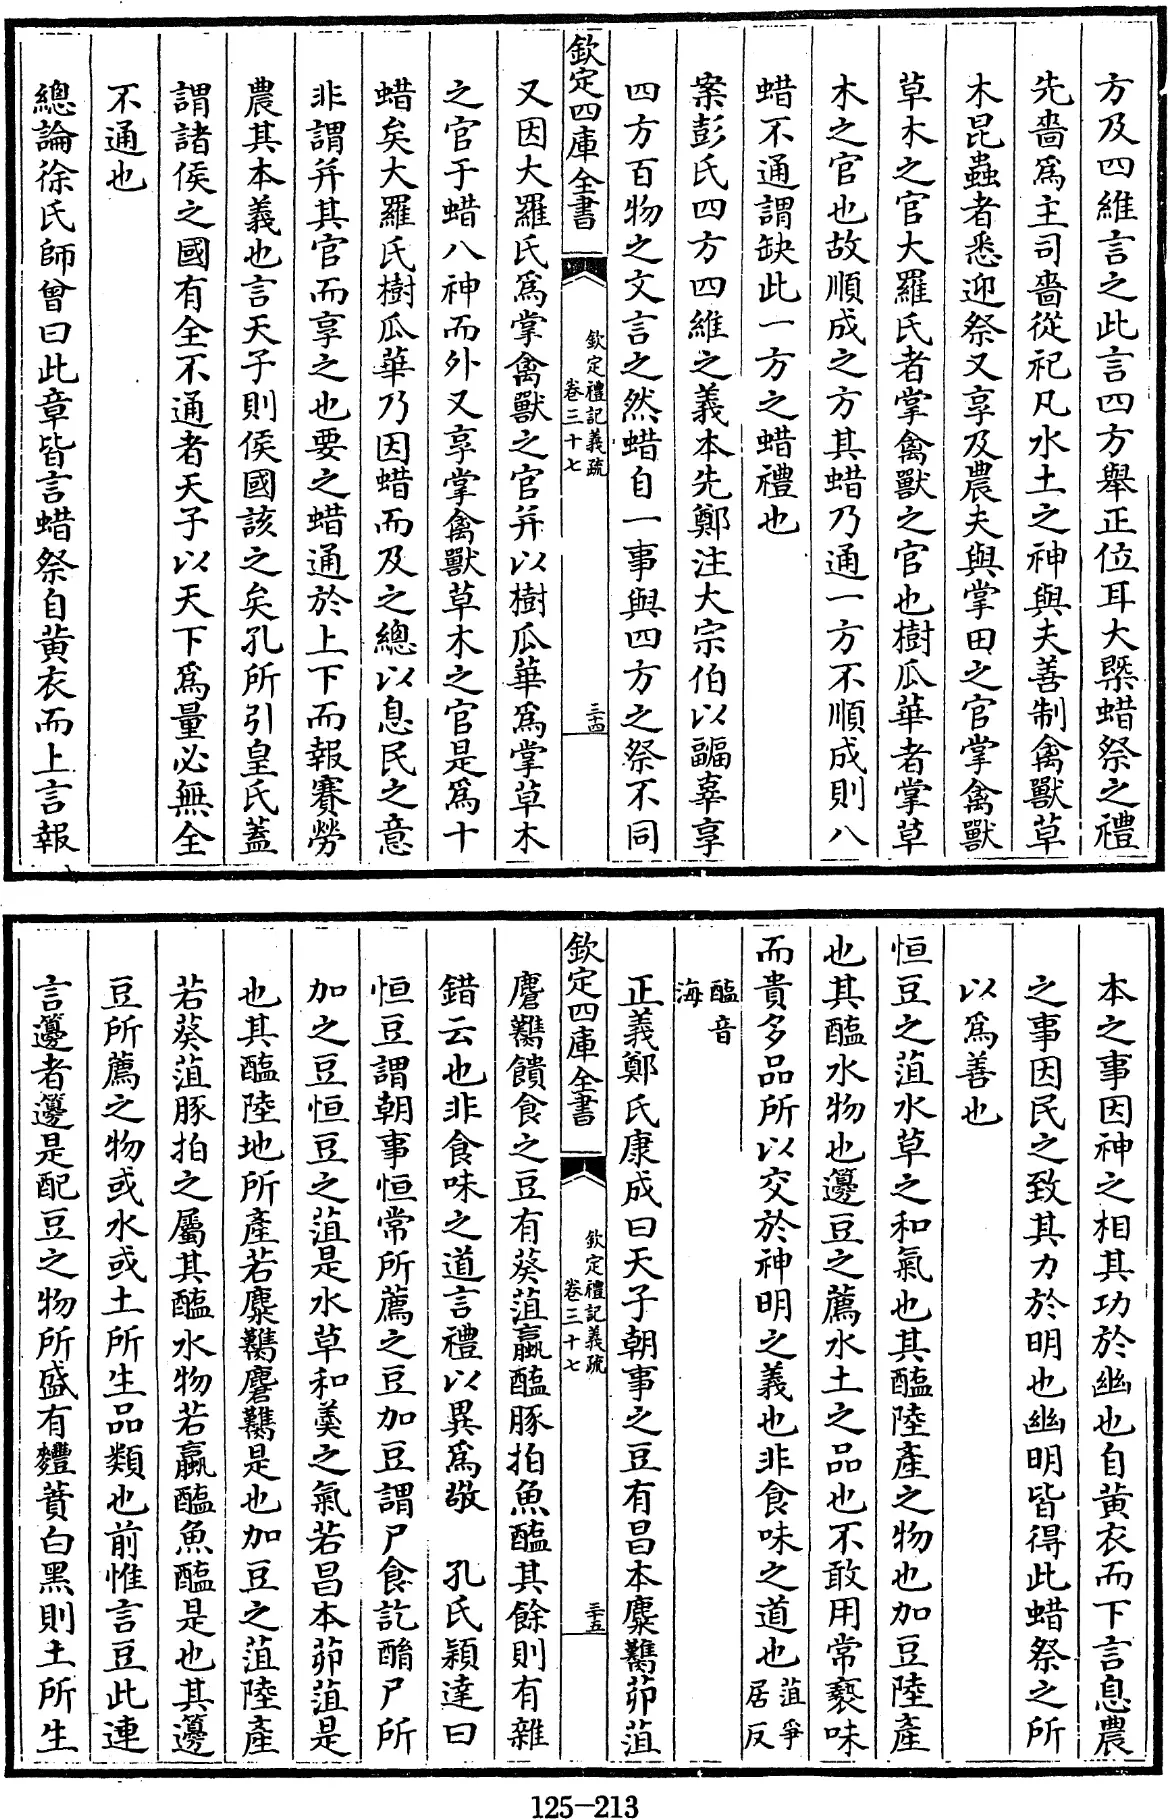 方及四維言之此言四方舉正位耳大槩蜡祭之禮
先嗇爲主司嗇從祀凡水土之神與夫善制禽獸草
木昆蟲者悉迎祭又享及農夫與掌田之官掌禽獸
草木之官大羅氏者掌禽獸之官也樹瓜華者掌草
木之官也故順成之方其蜡乃通一方不順成則八
蜡不通謂缺此一方之蜡禮也
案彭氏四方四維之義本先鄭注大宗伯以疈辜享
四方百物之文言之然蜡自一事與四方之祭不同
欽定四庫全書
欽定禮記義疏
卷三十七
三十四
又因大羅氏爲掌禽獸之官并以樹瓜華爲掌草木
之官于蜡八神而外又享掌禽獸草木之官是爲十
蜡矣大羅氏樹瓜華乃因蜡而及之總以息民之意
非謂并其官而享之也要之蜡通於上下而報賽勞
農其本義也言天子則侯國該之矣孔所引皇氏蓋
謂諸侯之國有全不通者天子以天下爲量必無全
不通也
總論徐氏師曾曰此章皆言蜡祭自黄衣而上言報
本之事因神之相其功於幽也自黄衣而下言息農
之事因民之致其力於明也幽明皆得此蜡祭之所
以爲善也
恒豆之菹水草之和氣也其醢陸產之物也加豆陸產
也其醢水物也籩豆之薦水土之品也不敢用常褻味
而貴多品所以交於神明之義也非食味之道也菹爭居反
醢音海
正義鄭氏康成曰天子朝事之豆有昌本麋臡茆菹
欽定四庫全書
欽定禮記義疏
卷三十七
三十五
麕臡饋食之豆有葵菹蠃醢豚拍魚醢其餘則有雜
錯云也非食味之道言禮以異爲敬　孔氏穎達曰
恒豆謂朝事恒常所薦之豆加豆謂尸食訖酳尸所
加之豆恒豆之菹是水草和羮之氣若昌本茆菹是
也其醢陸地所產若麋臡麕臡是也加豆之菹陸產
若葵菹豚拍之屬其醢水物若蠃醢魚醢是也其籩
豆所薦之物或水或土所生品類也前惟言豆此連
言籩者籩是配豆之物所盛有麷蕡白黑則土所生
125-213